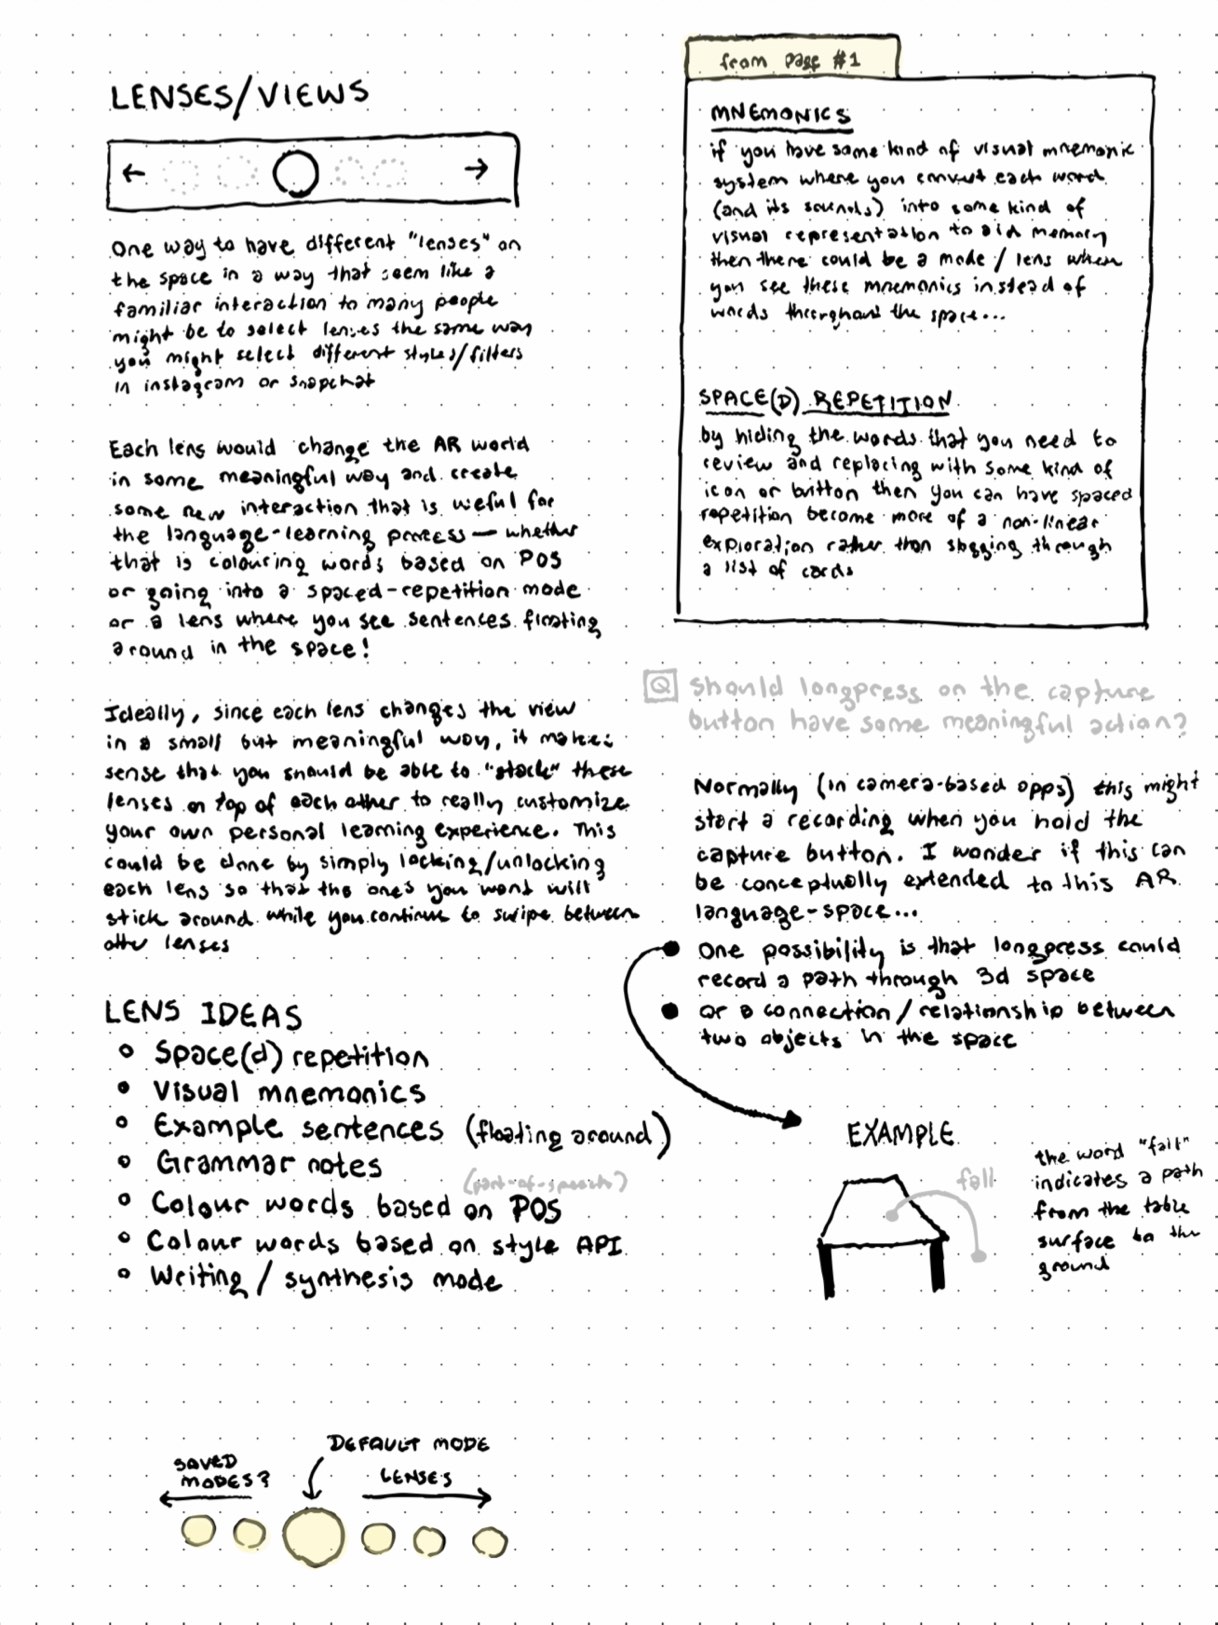 LENSES/VIEWS
One way to have different "lenses" on
the space in a way that seem like a
familiar interaction to many people
might be to select lenses the same way
you might select different styles/filters
in instagram or snapchat
Each lens would change the AR world
in some meaningful way and create
some new interaction that is useful for
the language-learning process — whether
that is colouring words based on POS
or going into a spaced-repetition mode
or a lens where you see sentences floating
around in the space!
Ideally, since each lens changes the view
in a small but meaningful way, it makes
sense that you should be able to "stack" these
lenses on top of each other to really customize
your own personal learning experience. This
could be done by simply locking/unlocking
each lens so that the ones you want will
stick around while you continue to swipe between
other lenses
LENS IDEAS
Space(d) repetition
Visual mnemonics
Example sentences (floating around)
Grammar notes
(part-of-speech)
Colour words based on POS
Colour words based on style API
Writing / synthesis mode
SAVED
MODES?
DEFAULT MODE
LENSES
from page #1
MNEMONICS
if you have some kind of visual mnemonic
system where you convert each word
(and its sounds) into some kind of
visual representation to aid memory
then there could be a mode / lens where
you see these mnemonics instead of
words throughout the space...
SPACE(D) REPETITION
by hiding the words that you need to
review and replacing with some kind of
icon or button then you can have spaced
repetition become more of a non-linear
exploration rather than slogging through
a list of cards
Q should longpress on the capture
button have some meaningful action?
Normally (in camera-based apps) this might
start a recording when you hold the
capture button. I wonder if this can
be conceptually extended to this AR
language-space...
One possibility is that longpress could
record a path through 3d space
or a connection / relationship between
two objects in the space
EXAMPLE
fall
the word "fall"
indicates a path
from the table
surface to the
ground